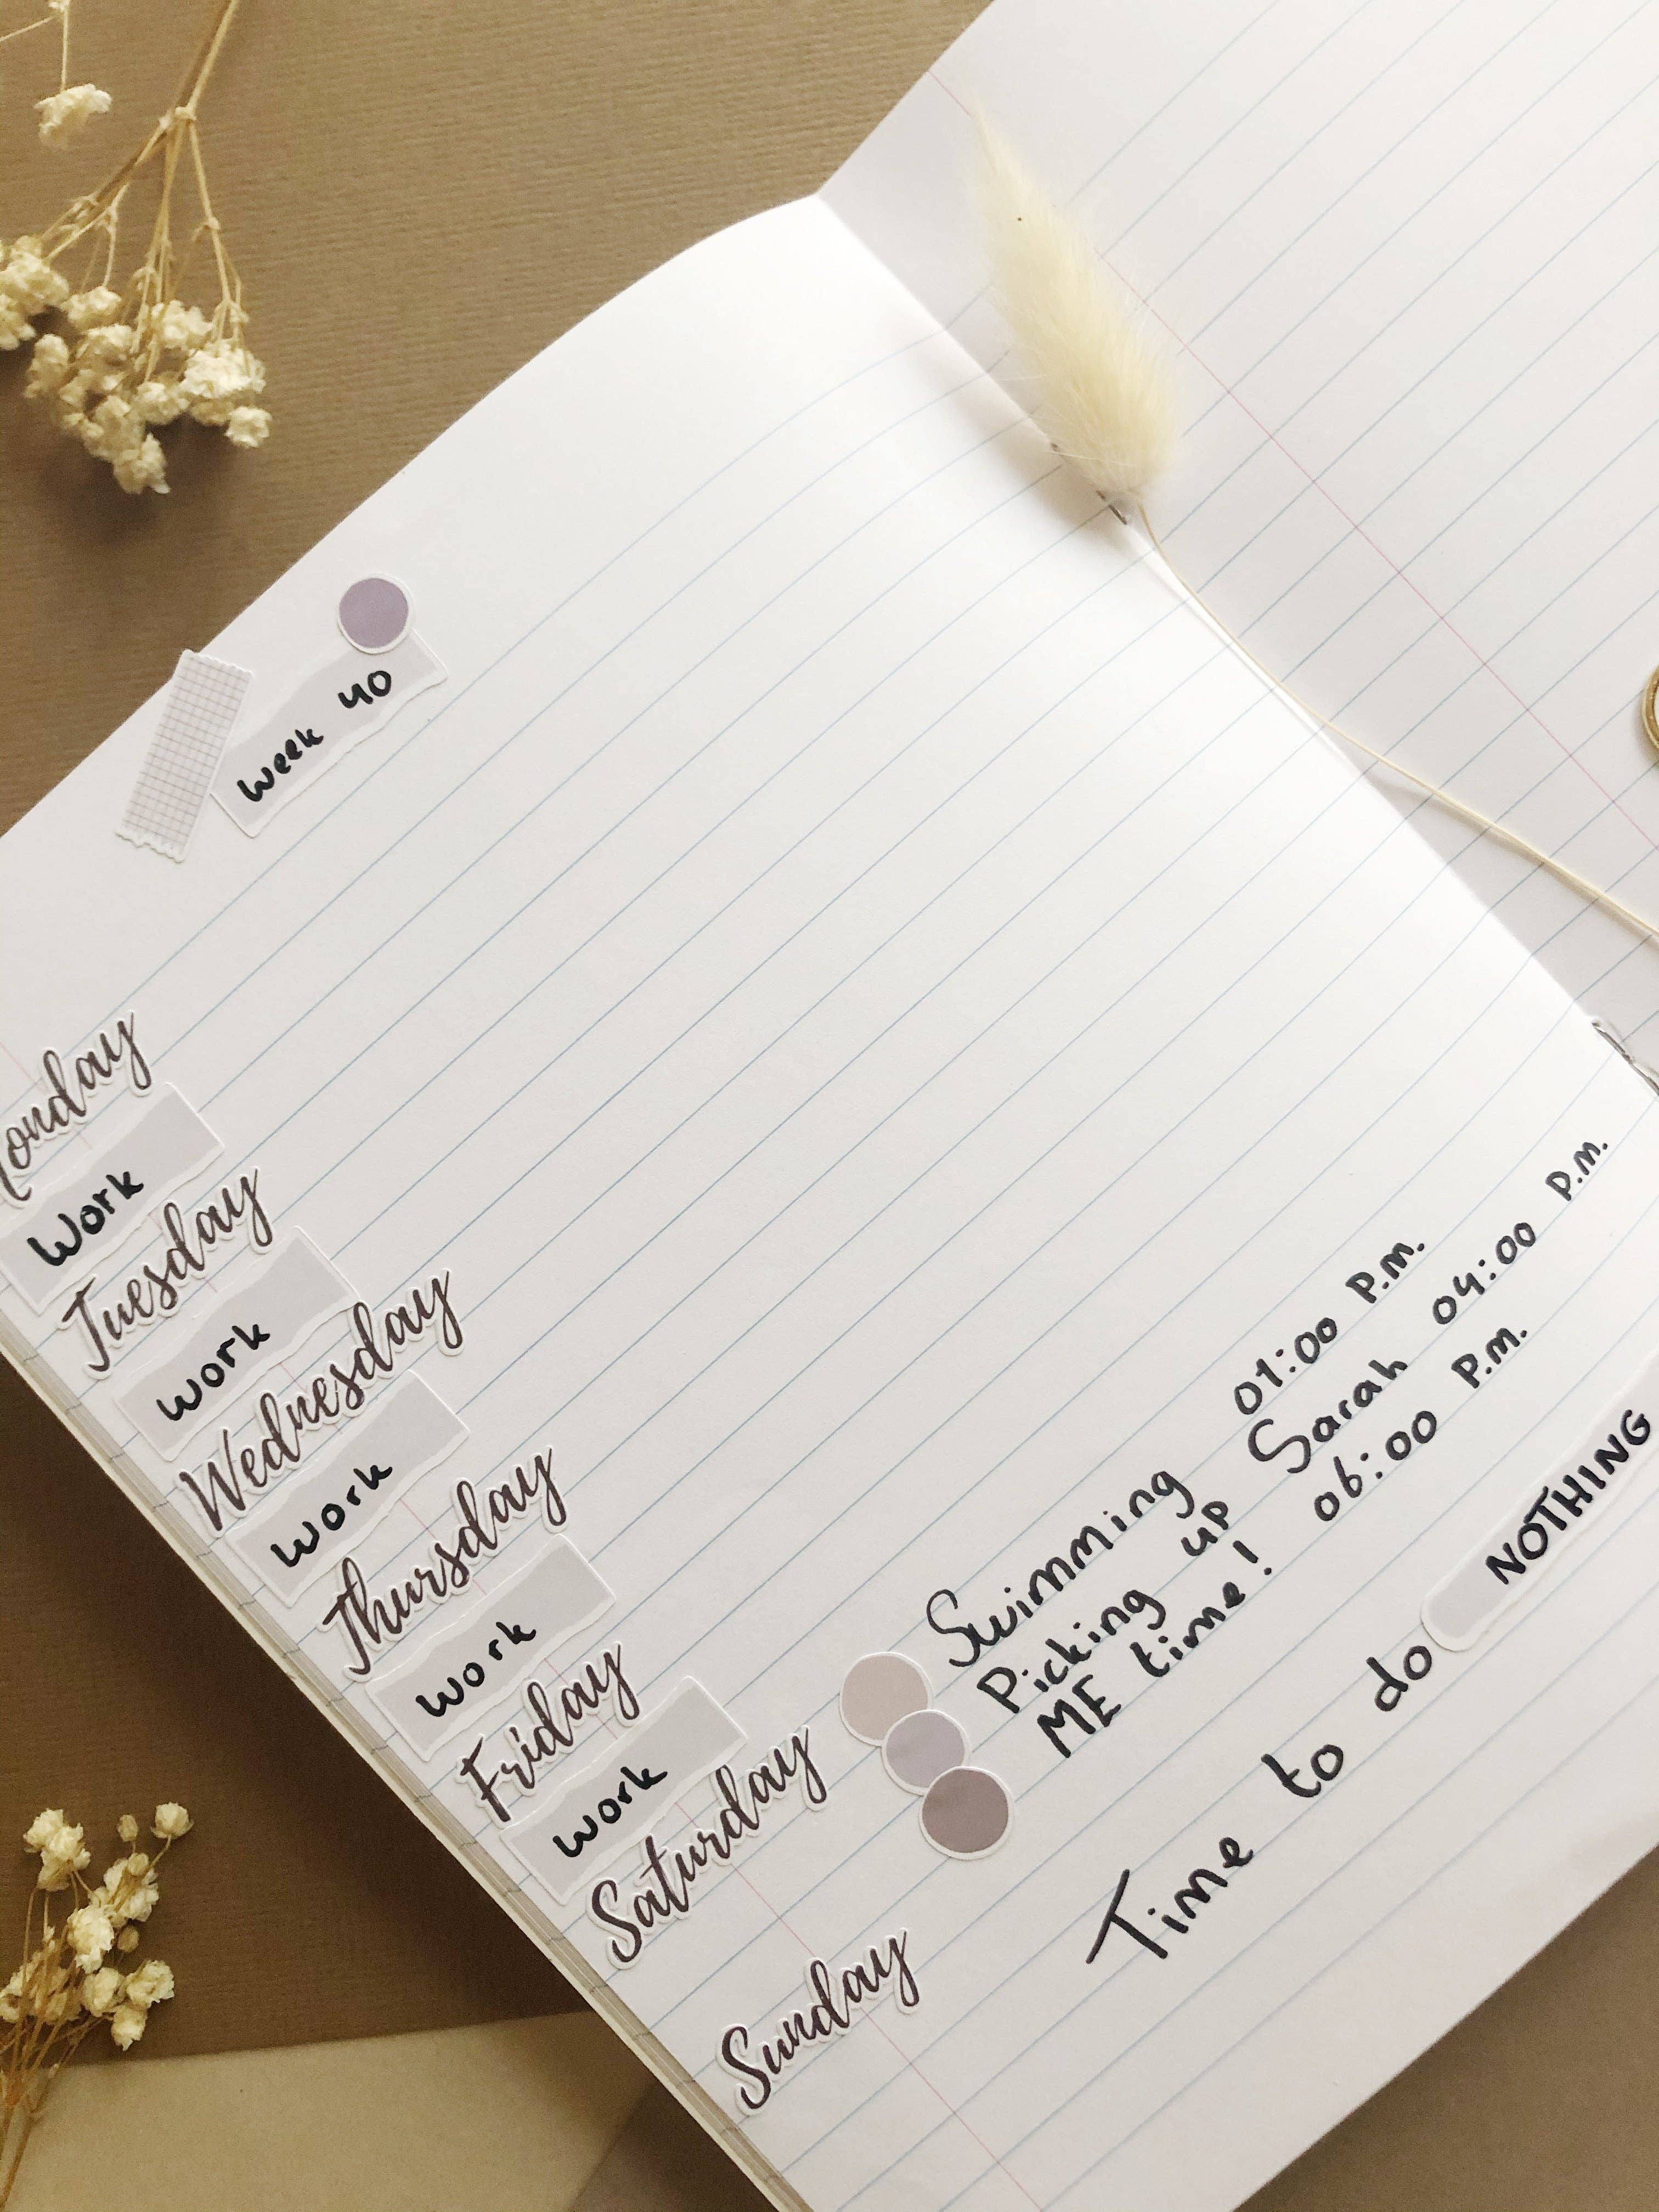 Week 40
Monday
Work
Tuesday
Work
Wednesday
Work
Thursday
Work
Friday
Work
Saturday
Swimming 01:00 P.M.
Picking up Sarah 04:00 P.M.
ME time! 06:00 P.M.
Sunday
Time to do NOTHING